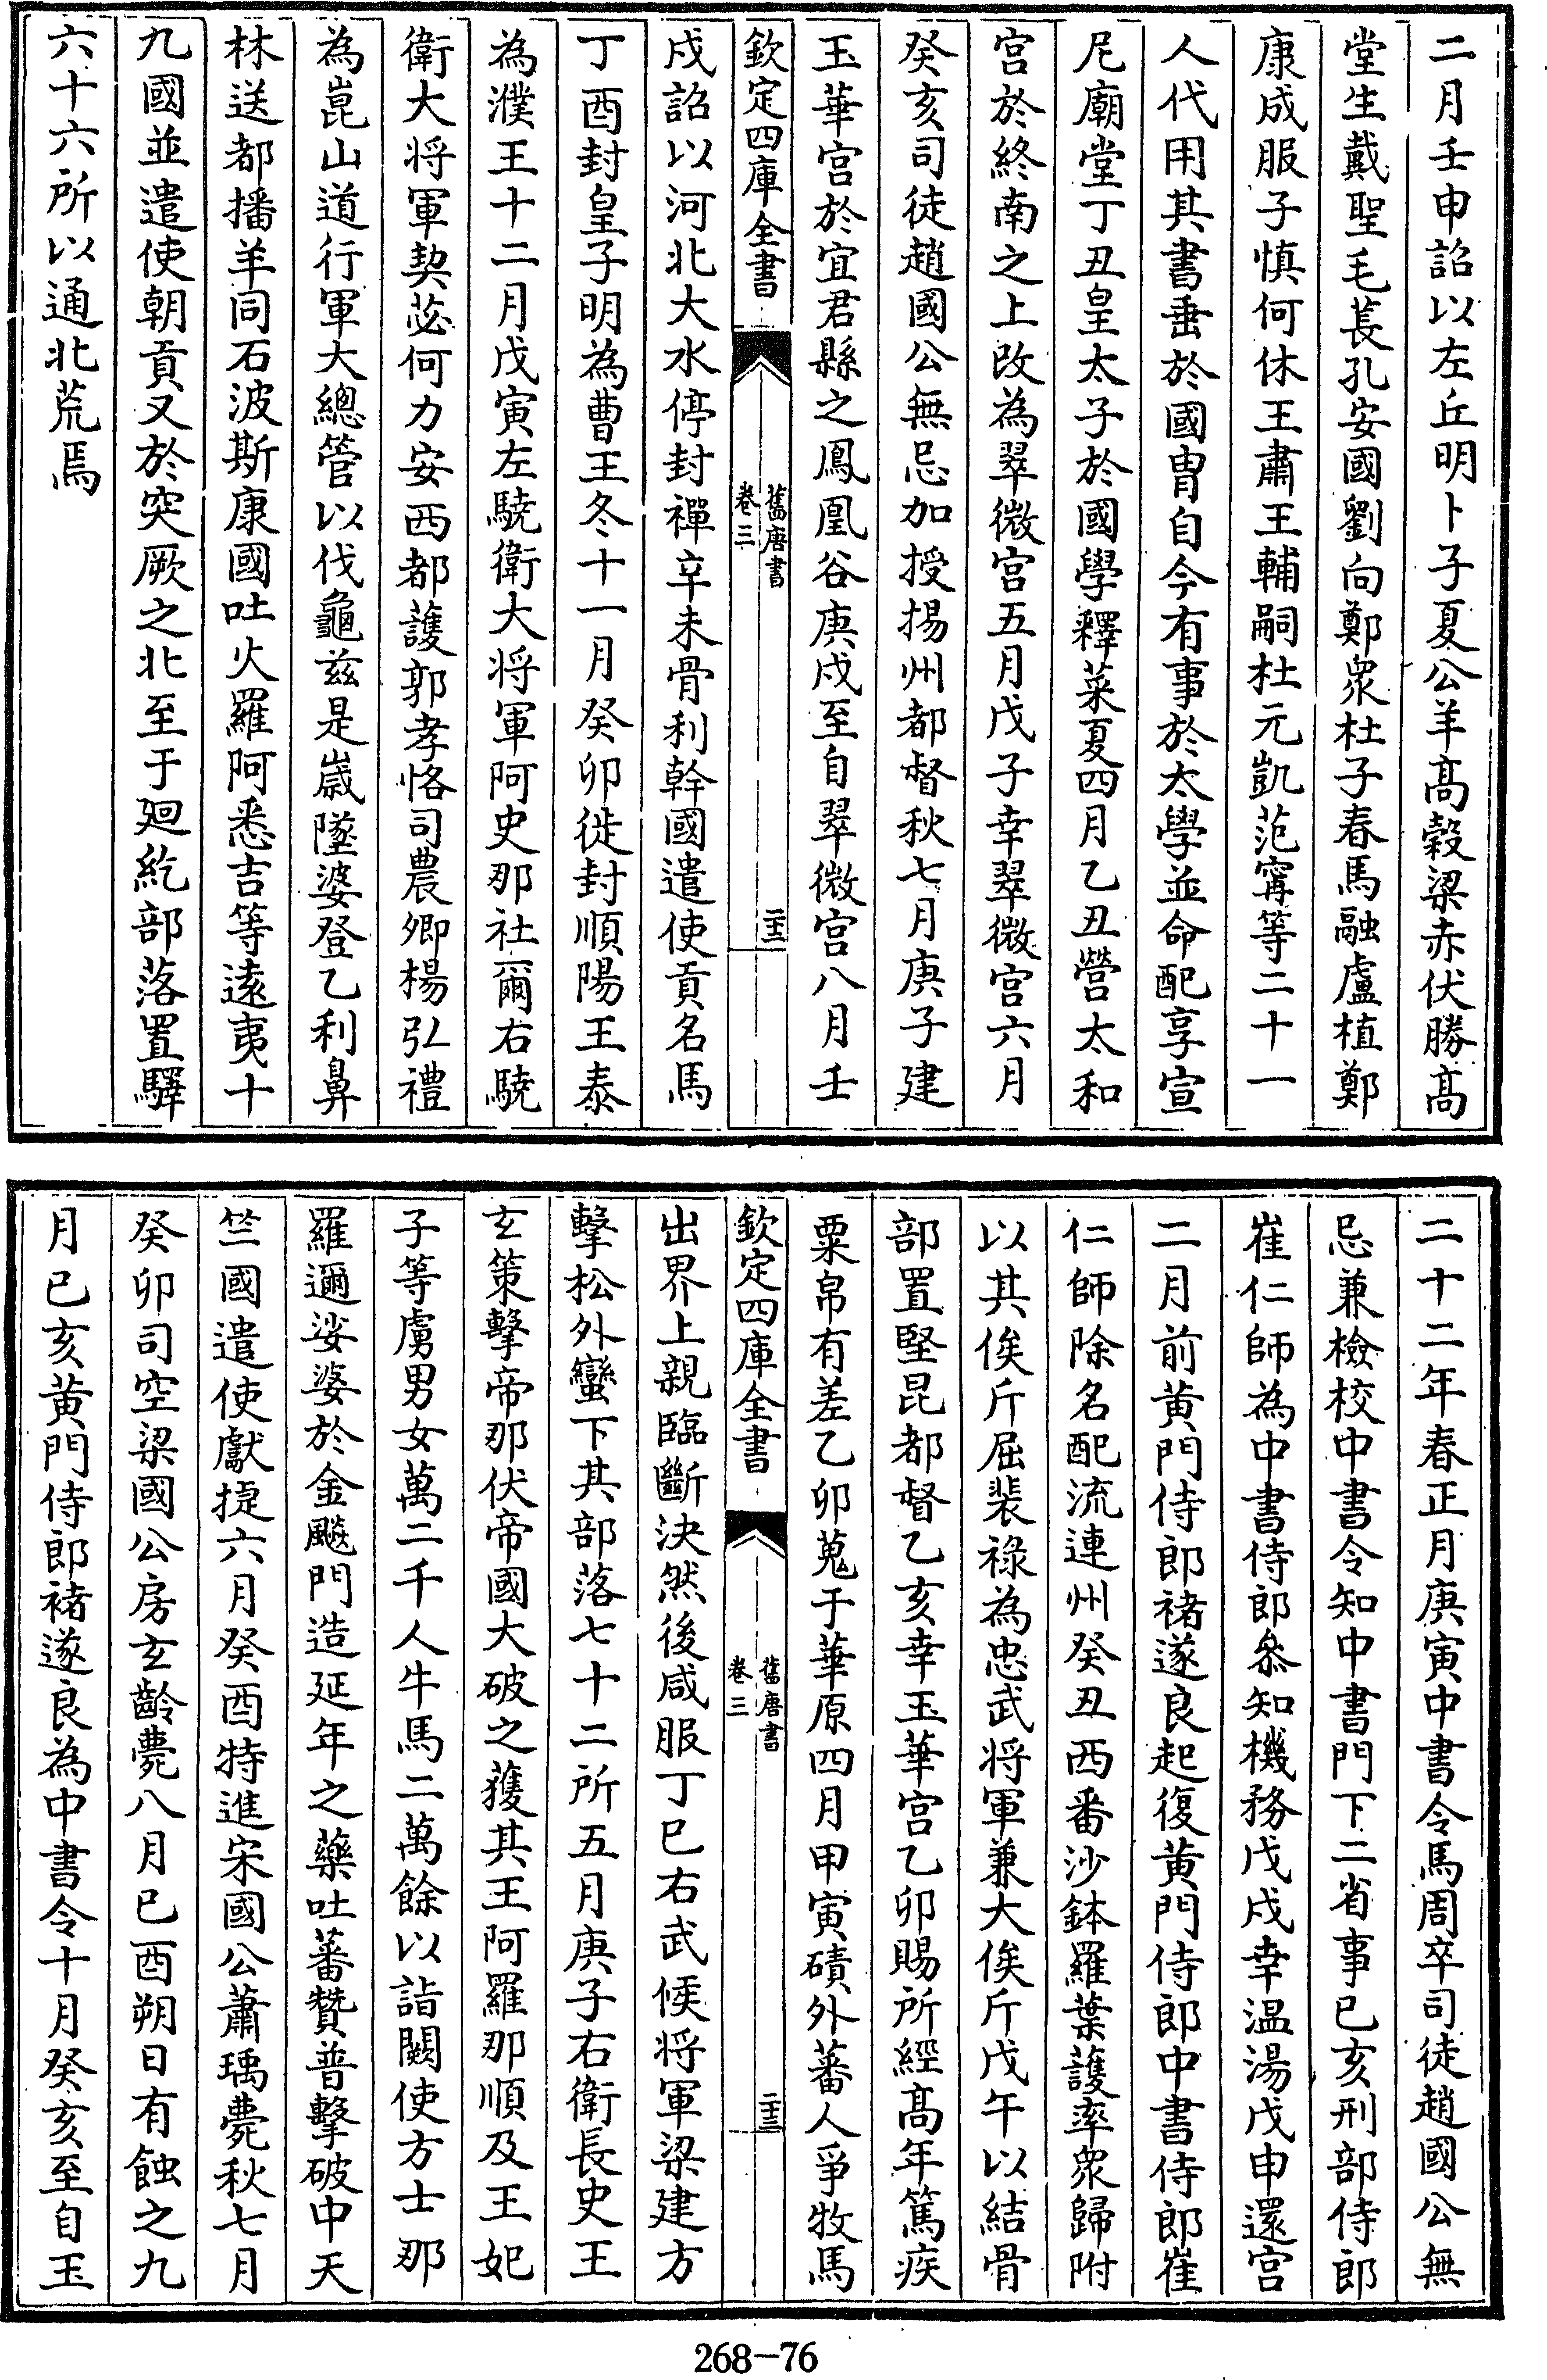 二月壬申詔以左丘明卜子夏公羊髙榖梁赤伏勝髙
堂生戴聖毛萇孔安國劉向鄭衆杜子春馬融盧植鄭
康成服子慎何休王肅王輔嗣杜元凱范甯等二十一
人代用其書垂於國胄自今有事於太學並命配享宣
尼廟堂丁丑皇太子於國學釋菜夏四月乙丑營太和
宫於終南之上改為翠微宫五月戊子幸翠微宫六月
癸亥司徒趙國公無忌加授揚州都督秋七月庚子建
玉華宫於宜君縣之鳳凰谷庚戍至自翠微宫八月壬
欽定四庫全書
舊唐書
卷三
二十二
戍詔以河北大水停封禪辛未骨利幹國遣使貢名馬
丁酉封皇子明為曹王冬十一月癸卯徙封順陽王泰
為濮王十二月戊寅左驍衛大将軍阿史那社爾右驍
衛大将軍契苾何力安西都護郭孝恪司農卿楊弘禮
為崑山道行軍大總管以伐龜兹是嵗墜婆登乙利鼻
林送都播羊同石波斯康國吐火羅阿悉吉等逺夷十
九國並遣使朝貢又於突厥之北至于廻紇部落置驛
六十六所以通北荒焉
二十二年春正月庚寅中書令馬周卒司徒趙國公無
忌兼檢校中書令知中書門下二省事已亥刑部侍郎
崔仁師為中書侍郎叅知機務戊戍幸温湯戊申還宫
二月前黄門侍郎禇遂良起復黄門侍郎中書侍郎崔
仁師除名配流連州癸丑西番沙鉢羅葉護率衆歸附
以其俟斤屈裴禄為忠武将軍兼大俟斤戊午以結骨
部置堅昆都督乙亥幸玉華宫乙卯賜所經髙年篤疾
粟帛有差乙卯蒐于華原四月甲寅磧外蕃人爭牧馬
欽定四庫全書
舊唐書
卷三
二十三
出界上親臨斷決然後咸服丁巳右武候将軍梁建方
擊松外蠻下其部落七十二所五月庚子右衛長史王
玄策擊帝那伏帝國大破之獲其王阿羅那順及王妃
子等虜男女萬二千人牛馬二萬餘以詣闕使方士那
羅邇娑婆於金飈門造延年之藥吐蕃贊普擊破中天
竺國遣使獻捷六月癸酉特進宋國公蕭瑀薨秋七月
癸卯司空梁國公房玄齡薨八月已酉朔日有蝕之九
月已亥黄門侍郎禇遂良為中書令十月癸亥至自玉
268-76